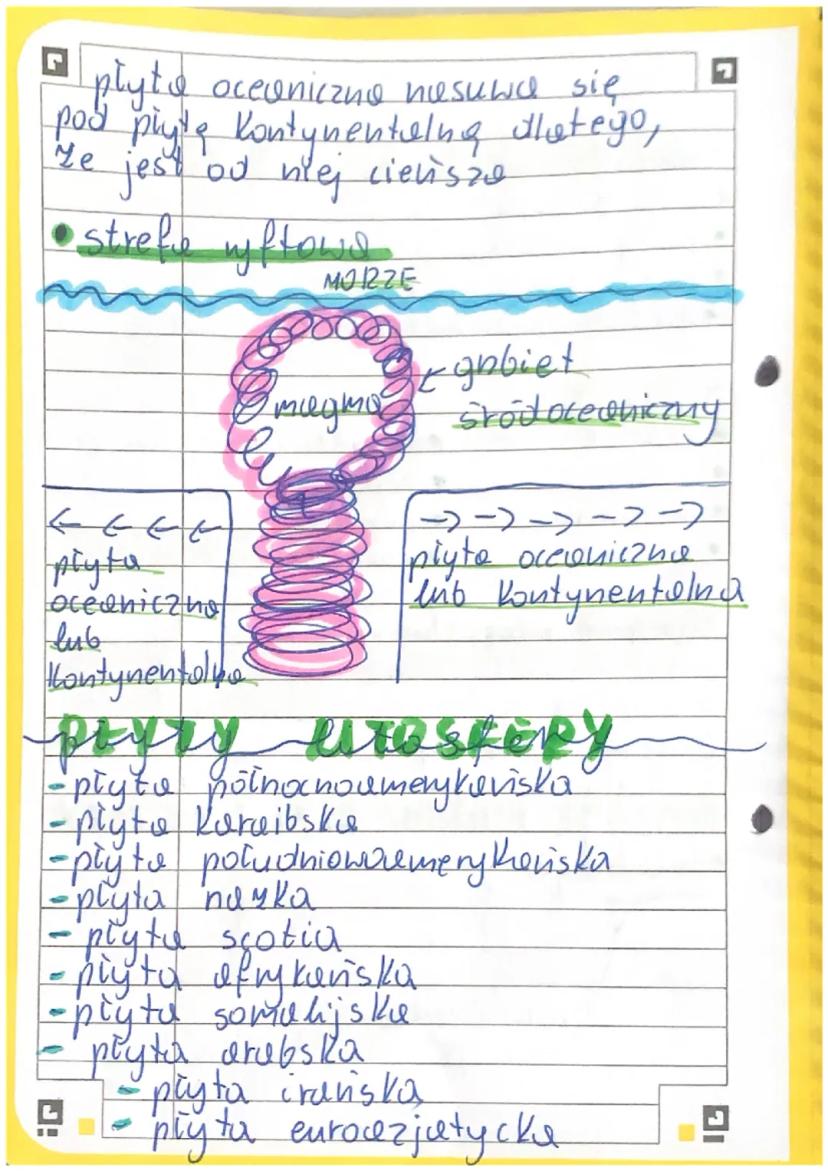 płyta oceaniczna nasuwa się
pod płytę kontynentalną dlatego,
że jest od niej cieńsza
• strefa ryftowa
MORZE
magma
grzbiet
śródoceaniczny
płyta
oceaniczna
lub
kontynentalna
płyta oceaniczna
lub kontynentalna
PŁYTY LITOSFERY
- płyta północnoamerykańska
- płyta karaibska
- płyta południowoamerykańska
- płyta nazka
- płyta scotia
- płyta afrykańska
- płyta somalijska
- płyta arabska
- płyta irańska
- płyta euroazjatycka